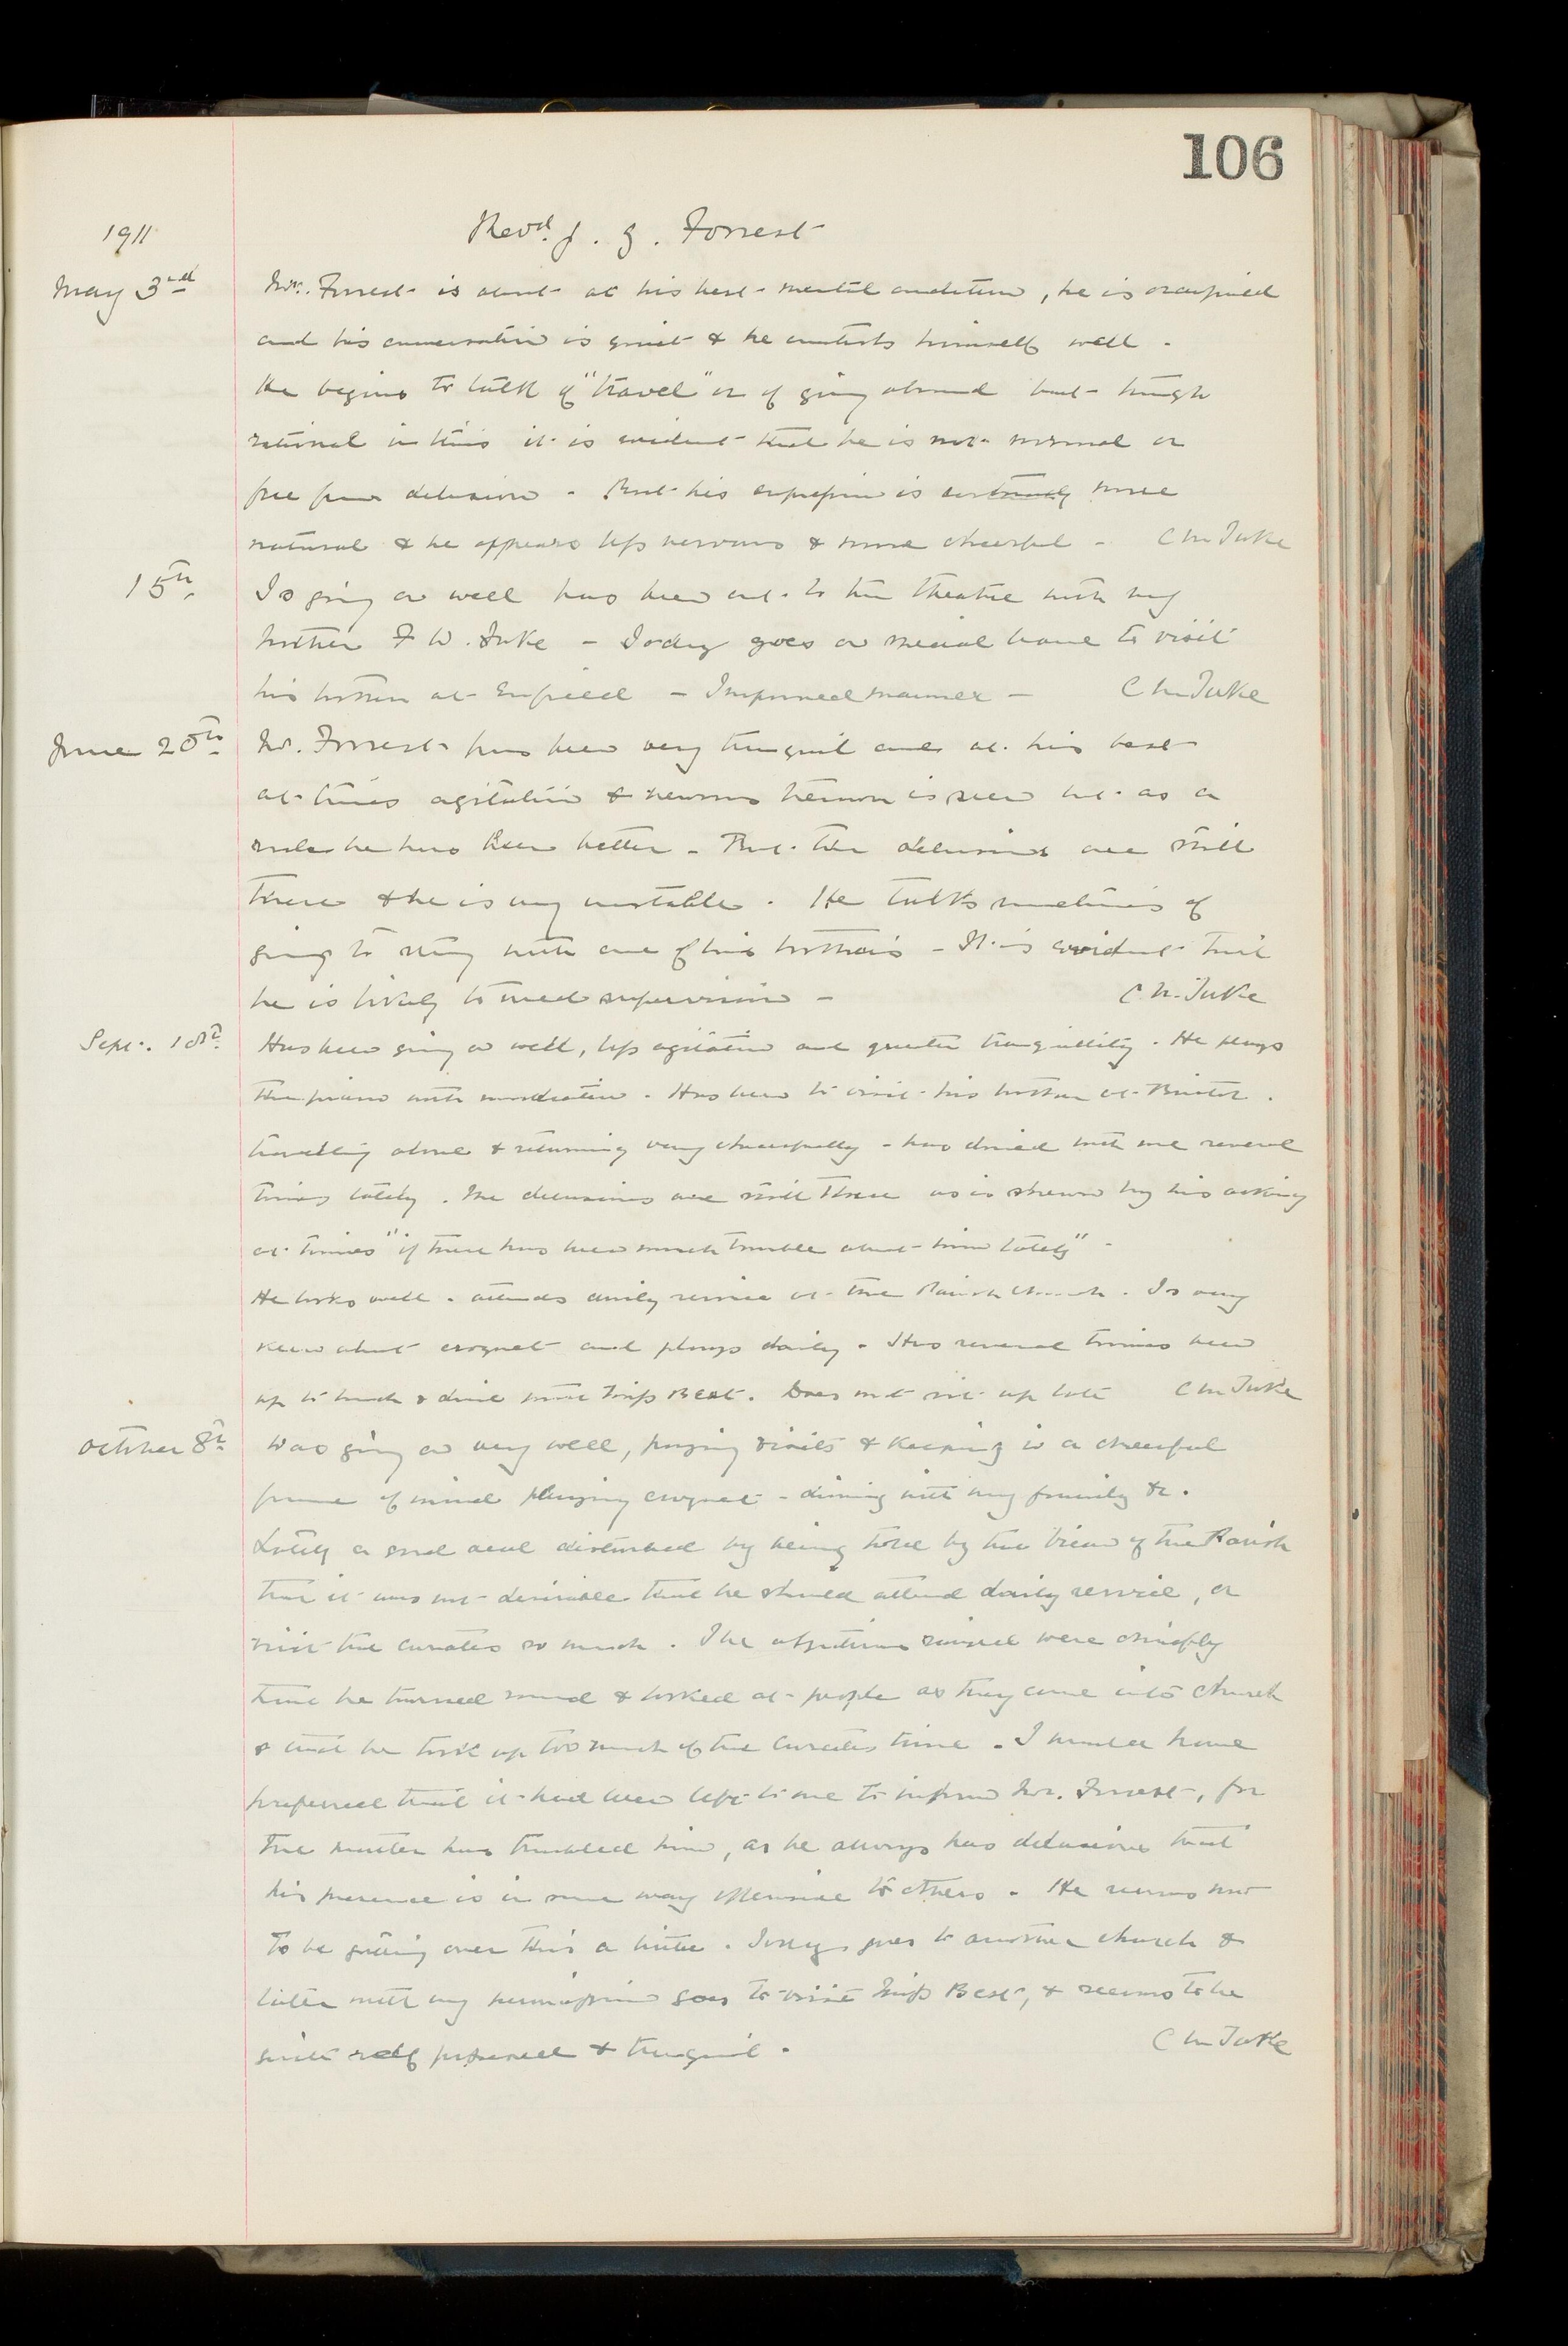 106
1911
Revd. J. G. Forrest
May 3rd
Mr. Forrest is about at his best mental condition, he is occupied
and his conversation is quiet & he controls himself well.
He begins to talk of "travel" or of going abroad but though
rational in this it is evident that he is not normal or
free from delusion. But his expression is certainly more
natural & he appears less nervous & more cheerful - C M Tuke
15th.
Is going on well has been out to the theatre with my
brother F W. Tuke - Today goes on special leave to visit
his brother at Enfield - Improved manner - C M Tuke
June 20th
Mr. Forrest has been very tranquil and at his best
at times agitation & nervous tremor is seen but as a
rule he has been better - But the delusions are still
there & he is very unstable. He talks sometimes of
going to stay with one of his brothers - It is evident that
he is likely to need supervision - C M. Tuke
Sept. 10th.
Has been going on well, less agitation and greater tranquillity. He plays
the piano with moderation. Has been to visit his brother at.
travelling alone & returning very cheerfully - has dined with me several
times lately. The delusions are still there as is shewn by his asking
at times "if there has been much trouble about him lately" -
He looks well. attends daily service at the Parish Church. Is very
keen about croquet and plays daily. Has several times been
up to lunch & dine with Miss Best. Does not sit up late C M Tuke
October 8th
Was going on very well, paying visits & keeping in a cheerful
frame of mind playing croquet - dining with my family &c.
Lately a good deal disturbed by being told by the Vicar of the Parish
that it was not desirable that he should attend daily service, or
visit the curates so much. The objections raised were chiefly
that he turned round & looked at people as they came into church
& that he took up too much of the Curates time. I would have
preferred that it had been left to me to inform Mr. Forrest, for
the matter has troubled him, as he always has delusions that
his presence is in some way offensive to others. He seems now
to be getting over this a little. Today goes to another church &
later with my permission goes to visit Miss Best, & seems to be
quite self possessed & tranquil. C M Tuke